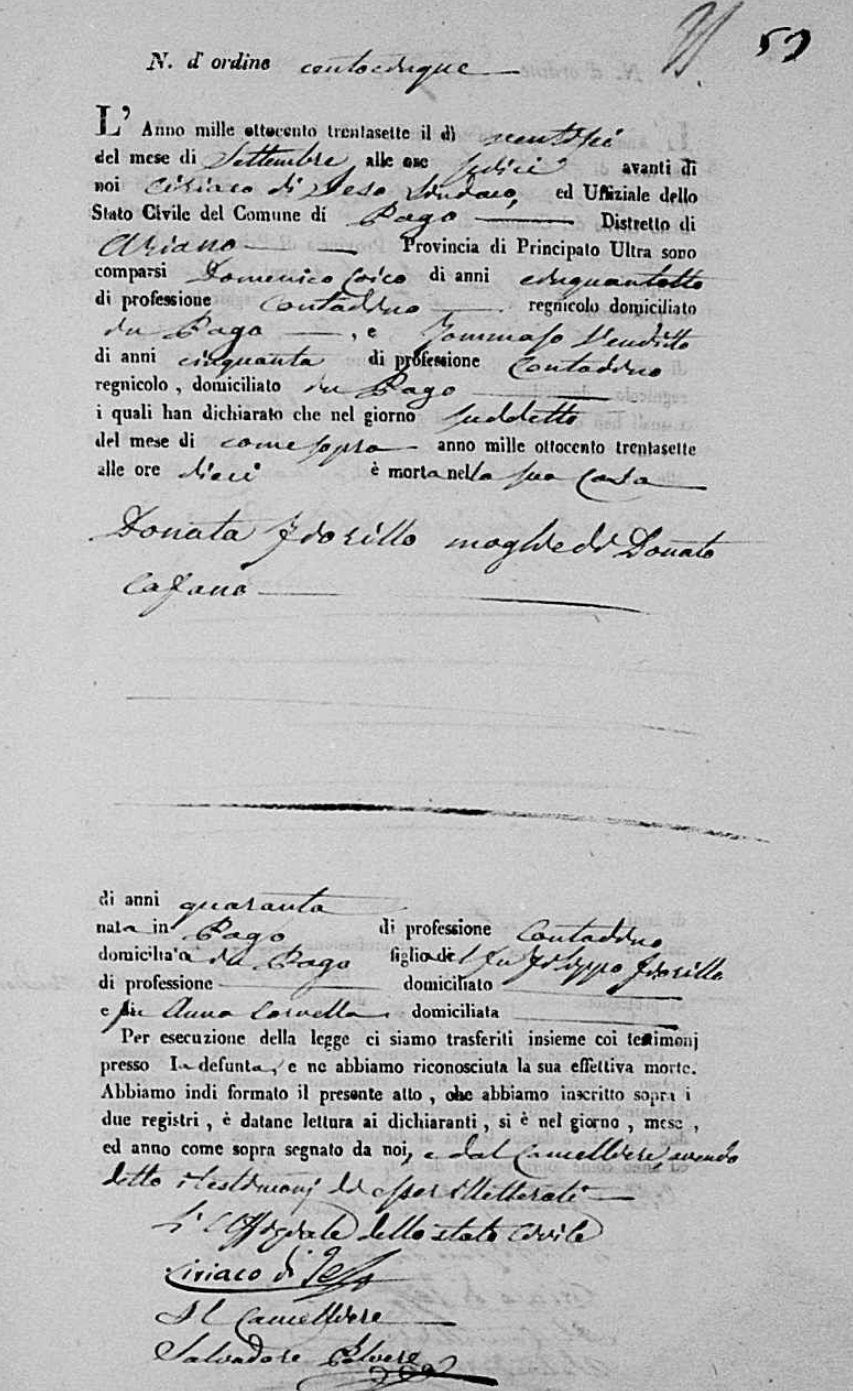 59
N. d' ordine centocinque
L' Anno mille ottocento trentasette il dì ventisei
del mese di Settembre alle ore sedici avanti di
noi Ciriaco di Jeso Sindaco, ed Uffiziale dello
Stato Civile del Comune di Pago Distretto di
Ariano Provincia di Principato Ultra sono
comparsi Domenico Coico di anni cinquantotto
di professione Contadino regnicolo domiciliato
in Pago, e Tommaso Venditto
di anni cinquanta di professione Contadino
regnicolo, domiciliato in Pago
i quali han dichiarato che nel giorno suddetto
del mese di come sopra anno mille ottocento trentasette
alle ore dieci è morta nella sua Casa
Donata Fiorillo moglie di Donato
Cafano
di anni quaranta
nata in Pago di professione Contadina
domiciliata in Pago figlia del fu Filippo Fiorillo
di professione domiciliato
e di Anna domiciliata
Per esecuzione della legge ci siamo trasferiti insieme coi testimonj
presso la defunta, e ne abbiamo riconosciuta la sua effettiva morte.
Abbiamo indi formato il presente atto, che abbiamo inscritto sopra i
due registri, è datane lettura ai dichiaranti, si è nel giorno, mese,
ed anno come sopra segnato da noi, e dal Cancelliere, avendo
detto i testimonj di esser illetterati
L'Uffiziale dello stato Civile
Ciriaco di Jeso
Il Cancelliere
Salvadore Polvere